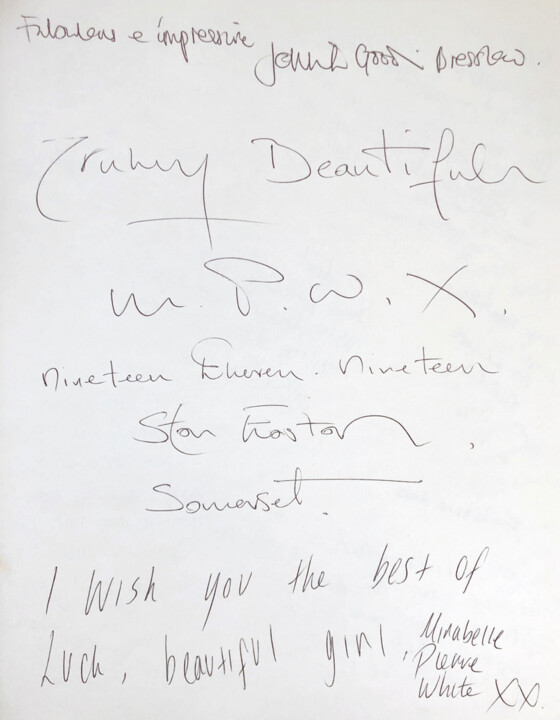 Fabulous & impressive John L Good. Dresslow.
Truly Beautiful
M. P. W. X.
Nineteen Eleven. Nineteen
Ston Easton,
Somerset.
I Wish you the best of
Luck, beautiful girl, Mirabelle
Pierre
White XX.